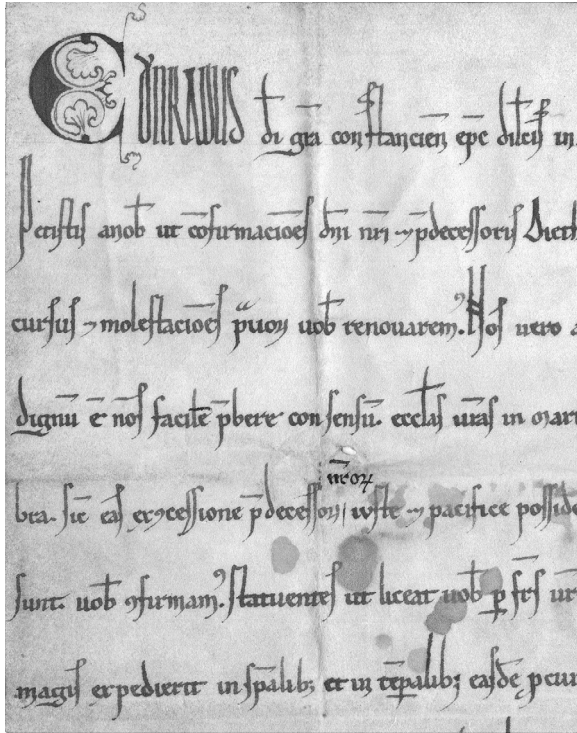 CONRADUS dī grā constancień ep̄c dilc̄is in
Petistis a nob̄ ut cōfirmaciōes dn̄i nr̄i ⁊ p̄decessoris Dieth
cursus ⁊ molestaciōes pͣuoꝝ uob̄ renouarem. Nos uero a
dignū ē nos facilē p̄bere consensū. eccl̄as ur̄as in mart
ur̄oꝝ
bra. sic̄ eas ex ꝯcessione p̄decessoꝝ iuste ⁊ pacifice posside
sunt. uob̄ ꝯfirmamꝰ. statuentes ut liceat uob̄ ꝑ fr̄s ur
magis expedierit in sp̄alibꝫ et in tēꝑalibꝫ easdē ꝓcur